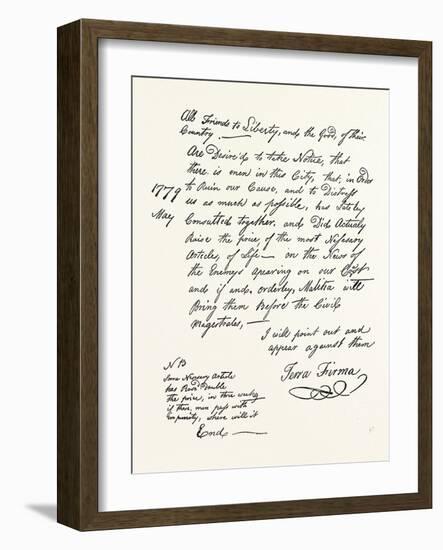 All Friends to Liberty, and the Good, of their
Country —
Are Desire'd to take Notice, that
there is men in this City, that, in Order
to Ruin our Cause, and to Distress
us as much as possible, has Lately
Consulted together, and Did Actualy
Raise the price, of the most Nessesary
Article, of Life — on the News of
the Enemys apearing on our Cost
and if and, orderley, Malitia will
Bring them Before the Civil
Magestrates, —
1779
May
I will point out and
appear against them
Terra Firma
NB
Some Nessesary Article
has Rose Double
the price, in three weeks
if these men pass with
impunity, where will it
End —